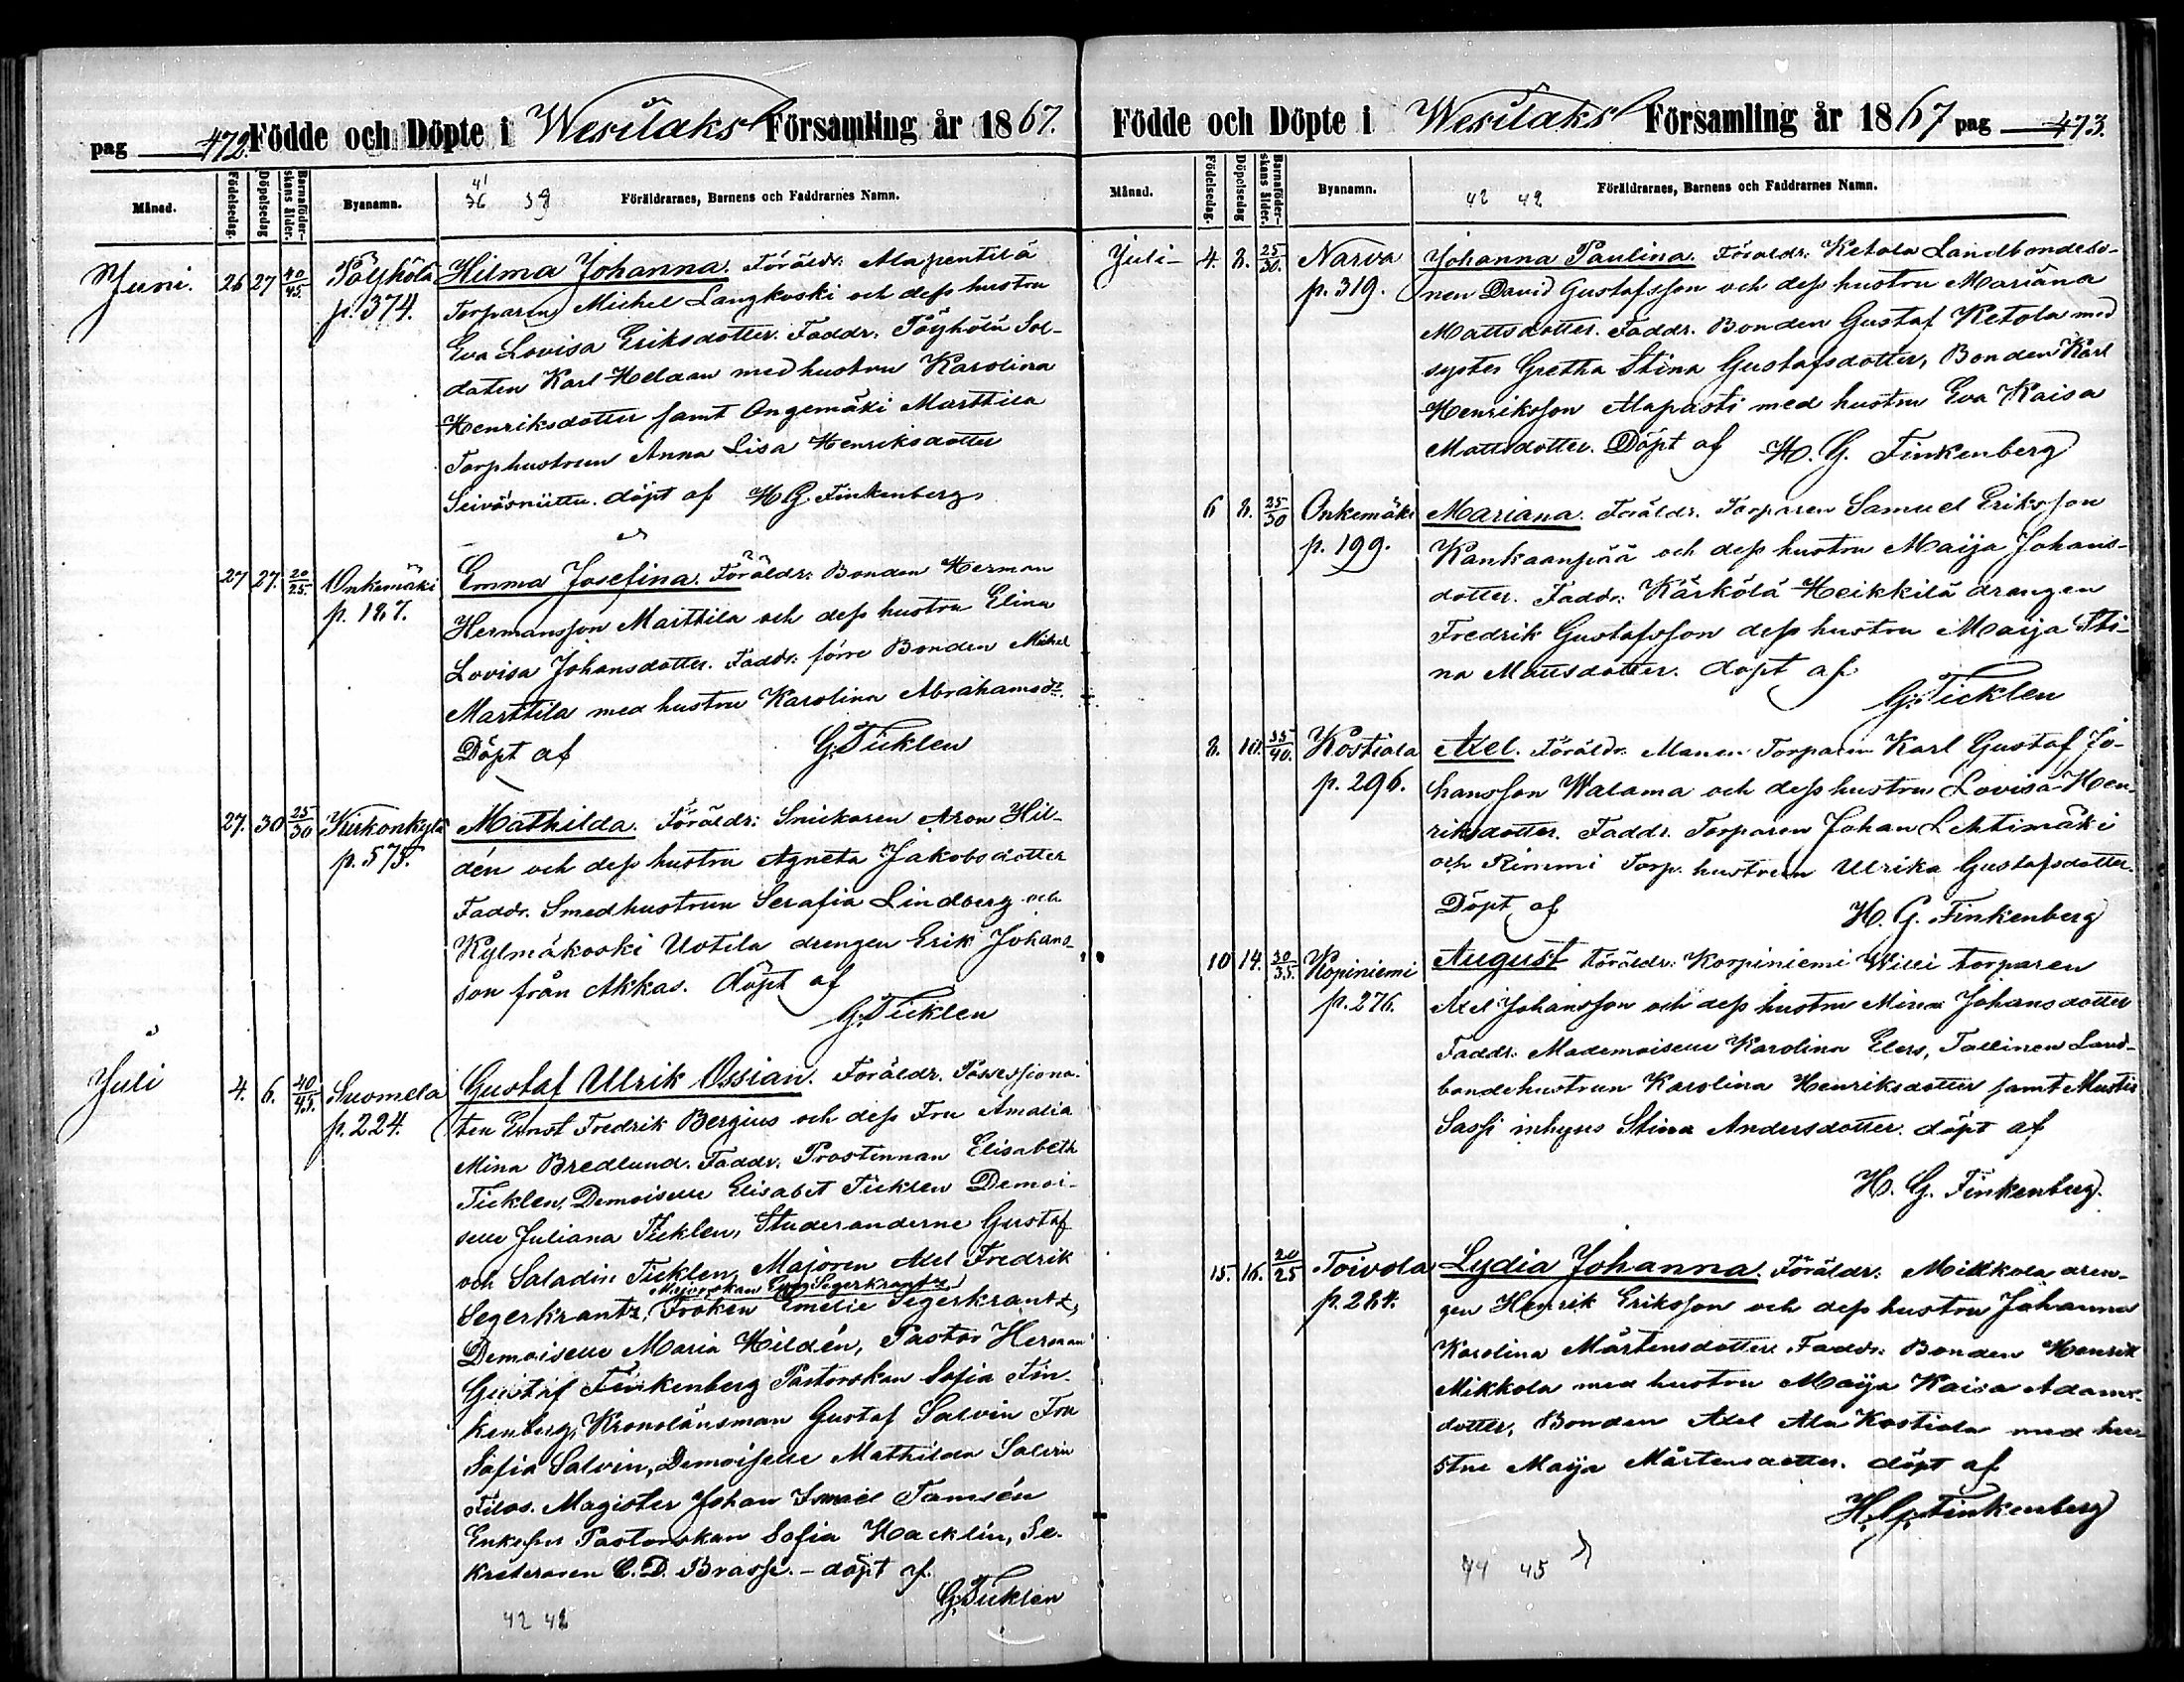 pag 472. Födde och Döpte i Wesilaks Församling år 1867.
Månad. Födelsedag. Döpelsedag Barnaföderskans ålder. Byanamn. Föräldrarnes, Barnens och Faddrarnes Namn.
41
36 39
Juni. 26 27 40/45. Pöyhölä Hilma Johanna. Föräldr. Alapentilä
p. 374. Torparen Michel Langkoski och dess hustru
Eva Lovisa Eriksdotter. Faddr. Pöyhölä Sol-
daten Karl Heldan med hustru Karolina
Henriksdotter samt Ongemäki Marttila
Torphustrun Anna Lisa Henriksdotter
döpt af H G Finkenberg
27 27. 20/25. Onkemäki Emma Josefina. Föräldr: Bonden Herman
p. 187. Hermansson Marttila och dess hustru Elina
Lovisa Johansdotter. Faddr: förre Bonden Michel
Marttila med hustru Karolina Abrahamsdr.
Döpt af G. Ticklen
27. 30 25/30 Kirkonkylä Mathilda. Föräldr: Snickaren Aron Hil-
p. 575. dén och dess hustru Agneta Jakobsdotter
Faddr. Smedhustrun Serafia Lindberg och
Kylmäkoski Uotila drengen Erik Johans-
son från Akkas. döpt af
G. Ticklen
Juli 4. 6. 40/45. Suomela Gustaf Ulrik Ossian. Föräldr. Possessiona-
p. 224. ten Ernst Fredrik Bergius och dess Fru Amalia
Mina Bredlund. Faddr. Prostinnan Elisabeth
Ticklen, Demoiselle Elisabet Ticklen Demoi-
selle Juliana Ticklen, Studeranderne Gustaf
och Saladin Ticklen, Majoren Axel Fredrik
Majorskan Eva Segerkrantz
Segerkrantz, Fröken Emelie Segerkrantz,
Demoiselle Maria Hildén, Pastor Herman
Gustaf Finkenberg Pastorskan Sofia Fin-
kenberg, Kronolänsman Gustaf Salvin Fru
Sofia Salvin, Demoiselle Mathilda Salvin
Filos. Magister Johan Ismael Tamlén
Enkefru Pastorskan Sofia Hacklin, Se-
kreteraren C. D. Brasse. - döpt af
G. Ticklen
42 42
Födde och Döpte i Wesilaks Församling år 1867 pag 473.
Månad. Födelsedag. Döpelsedag Barnaföderskans ålder. Byanamn. Föräldrarnes, Barnens och Faddrarnes Namn.
42 42
Juli- 4. 8. 25/30. Narva Johanna Paulina. Föräldr: Ketola Landbondeso-
p. 319. nen David Gustafsson och dess hustru Mariana
Mattsdotter. Faddr. Bonden Gustaf Ketola med
syster Gretha Stina Gustafsdotter, Bonden Karl
Henriksson Alapasti med hustru Eva Kaisa
Mattsdotter. Döpt af H. G. Finkenberg
6 8. 25/30 Onkemäki Mariana. Föräldr. Torparen Samuel Eriksson
p. 199. Kankaanpää och dess hustru Maija Johans-
dotter. Faddr: Kärkölä Heikkilä drengen
Fredrik Gustafsson dess hustru Maija Sti-
na Mattsdotter. döpt af
G. Ticklen
8. 10. 35/40. Kostiala Axel. Föräldr. Manen Torparen Karl Gustaf Jo-
p. 296. hansson Walama och dess hustru Lovisa Hen-
riksdotter. Faddr. Torparen Johan Lehtimäki
och Rimmi Torp. hustrun Ulrika Gustafsdotter.
Döpt af H. G. Finkenberg
10 14. 30/35. Kopiniemi August Föräldr: Korpiniemi Willi torparen
p. 276. Axel Johansson och dess hustru Mina Johansdotter
Faddr. Mademoiselle Karolina Elers, Tallinen Land-
bondehustrun Karolina Henriksdotter samt Mustis
Sassi inhyses Stina Andersdotter. döpt af
H. G. Finkenberg.
15. 16. 20/25 Toivola Lydia Johanna. Föräldr: Mikkola dren-
p. 284. gen Henrik Eriksson och dess hustru Johanna
Karolina Mårtensdotter. Faddr: Bonden Henrik
Mikkola med hustru Maija Kaisa Adams-
dotter, Bonden Axel Ala Kostiala med hu-
stru Maija Mårtensdotter. döpt af
H. G. Finkenberg
44 45